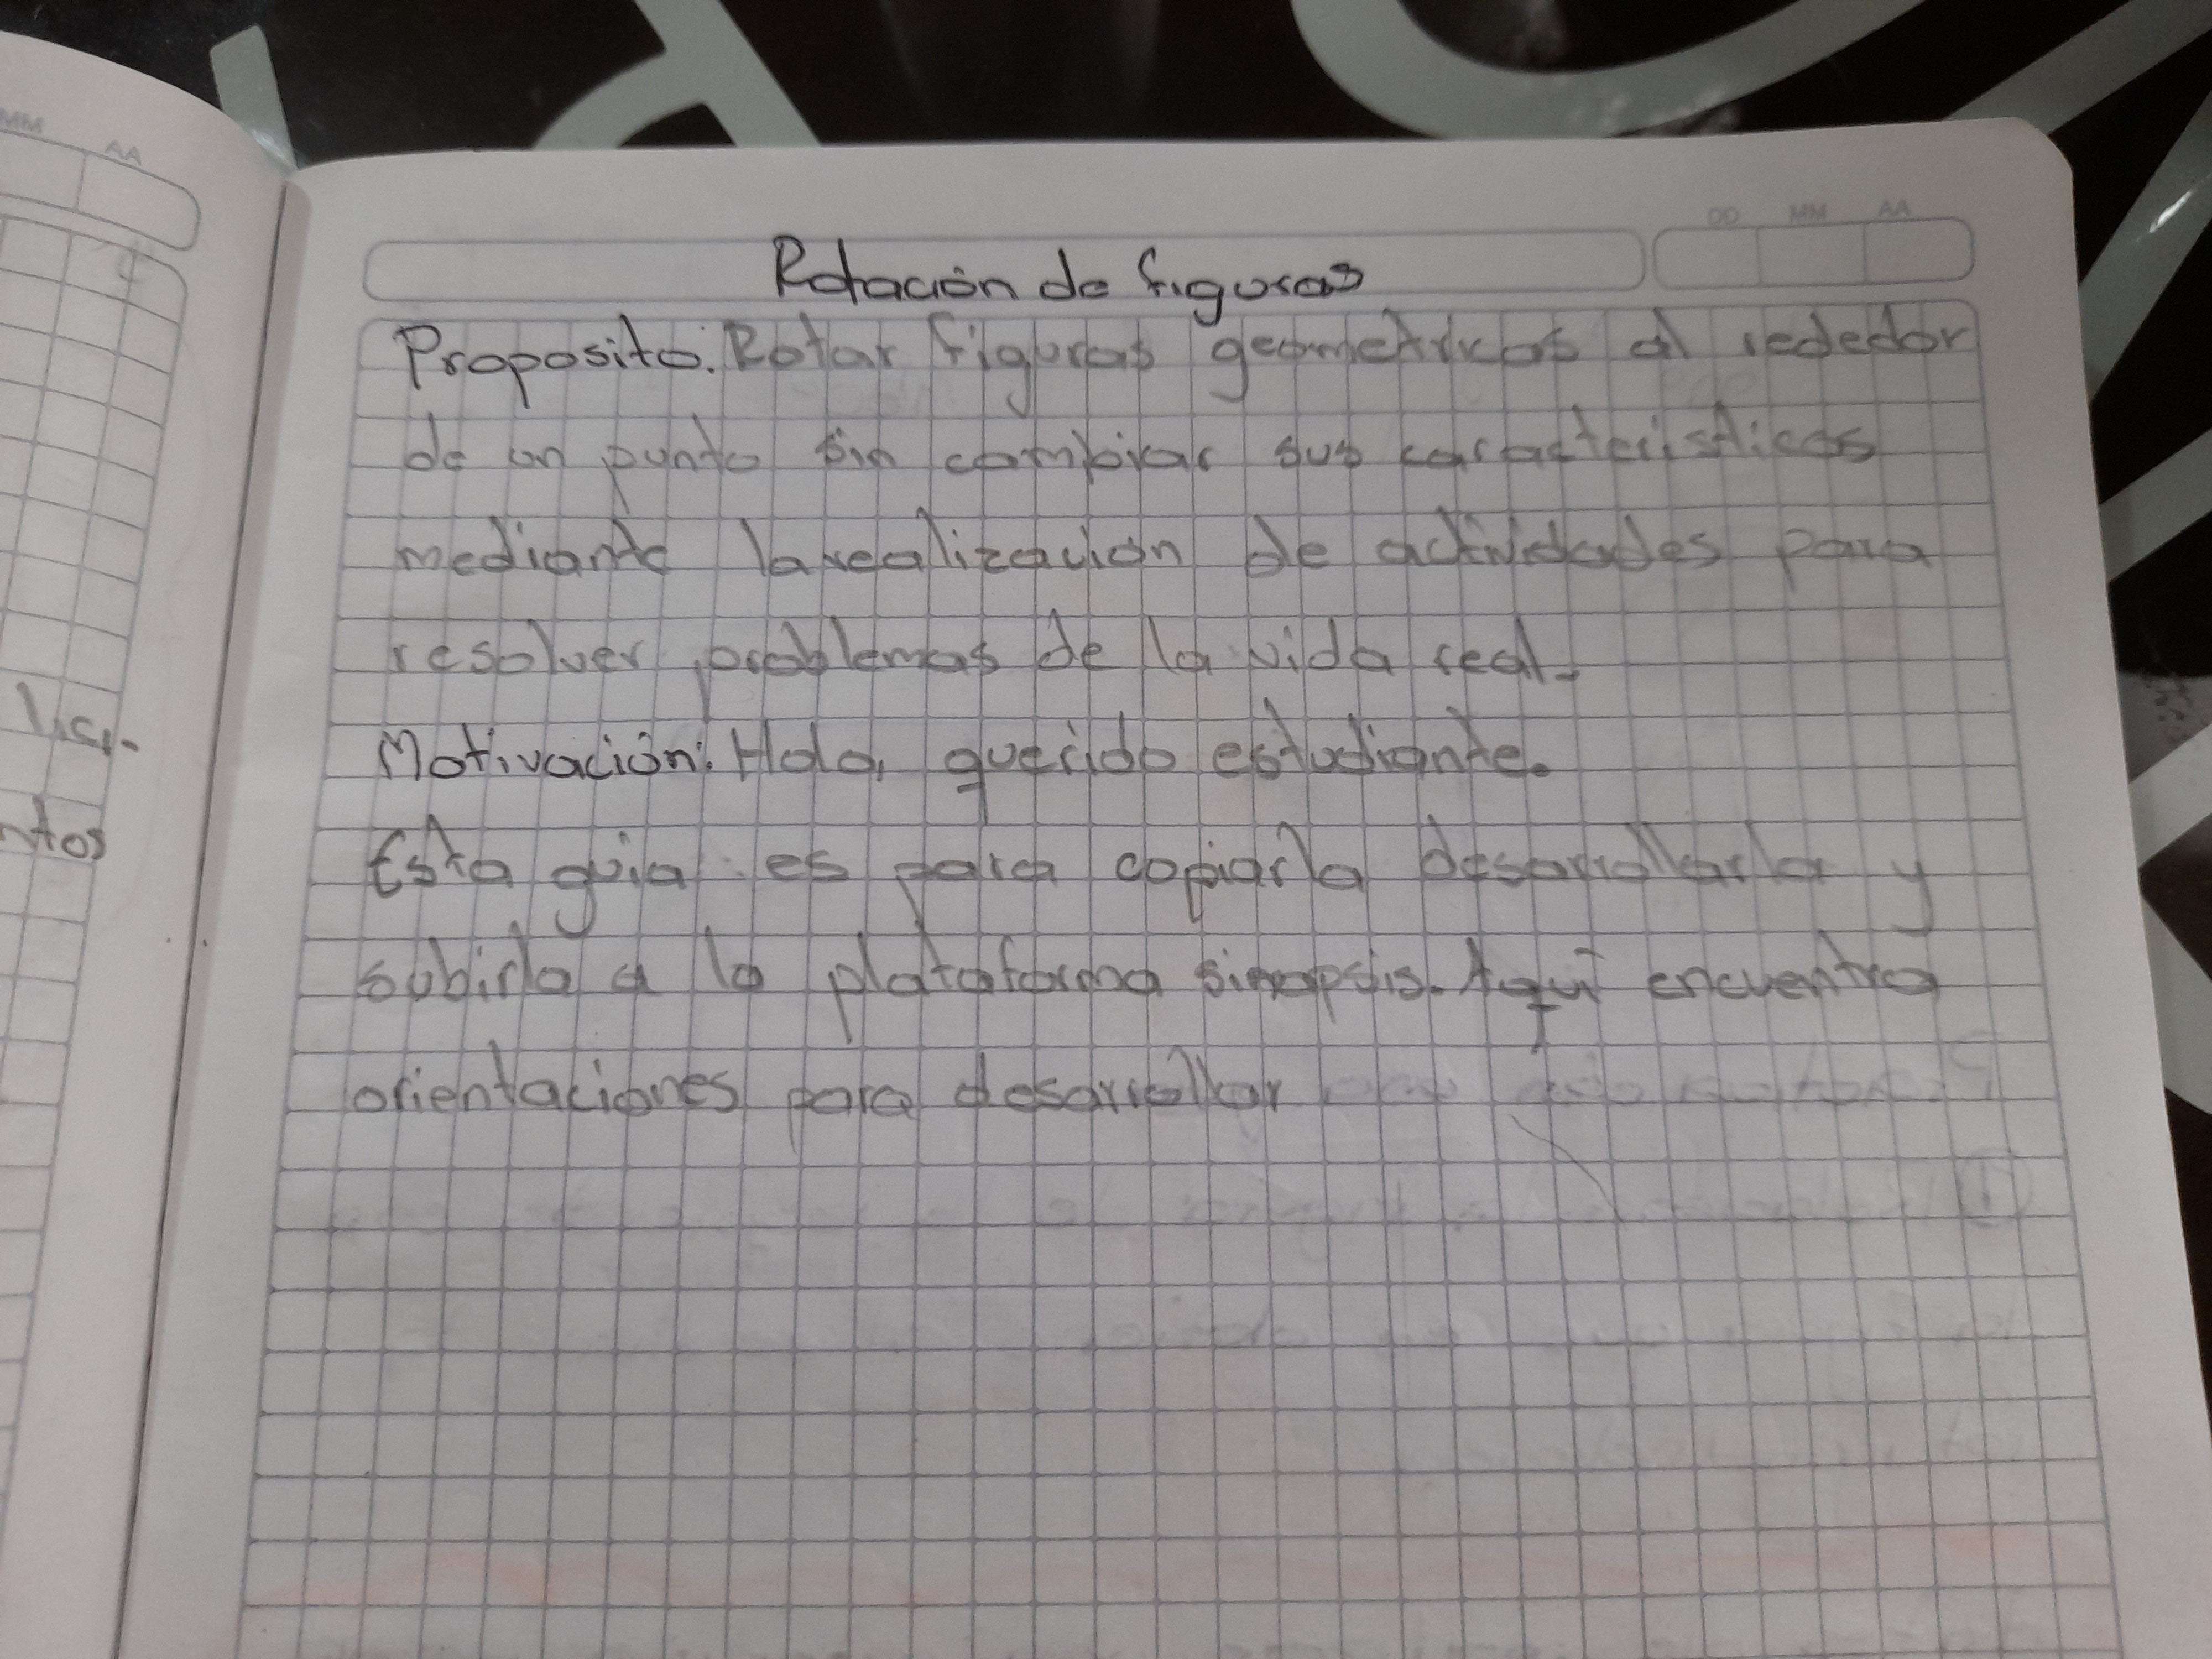 MM AA
DD MM AA
lici-
ntos
Rotación de figuras
Proposito: Rotar figuras geometricas al rededor
de un punto sin cambiar sus caracteristicas
mediante la realización de actividades para
resolver problemas de la vida real.
Motivación: Hola, querido estudiante.
Esta guia es para copiarla desarrollarla y
subirla a la plataforma sinopsis. Aquí encuentra
orientaciones para desarrollar